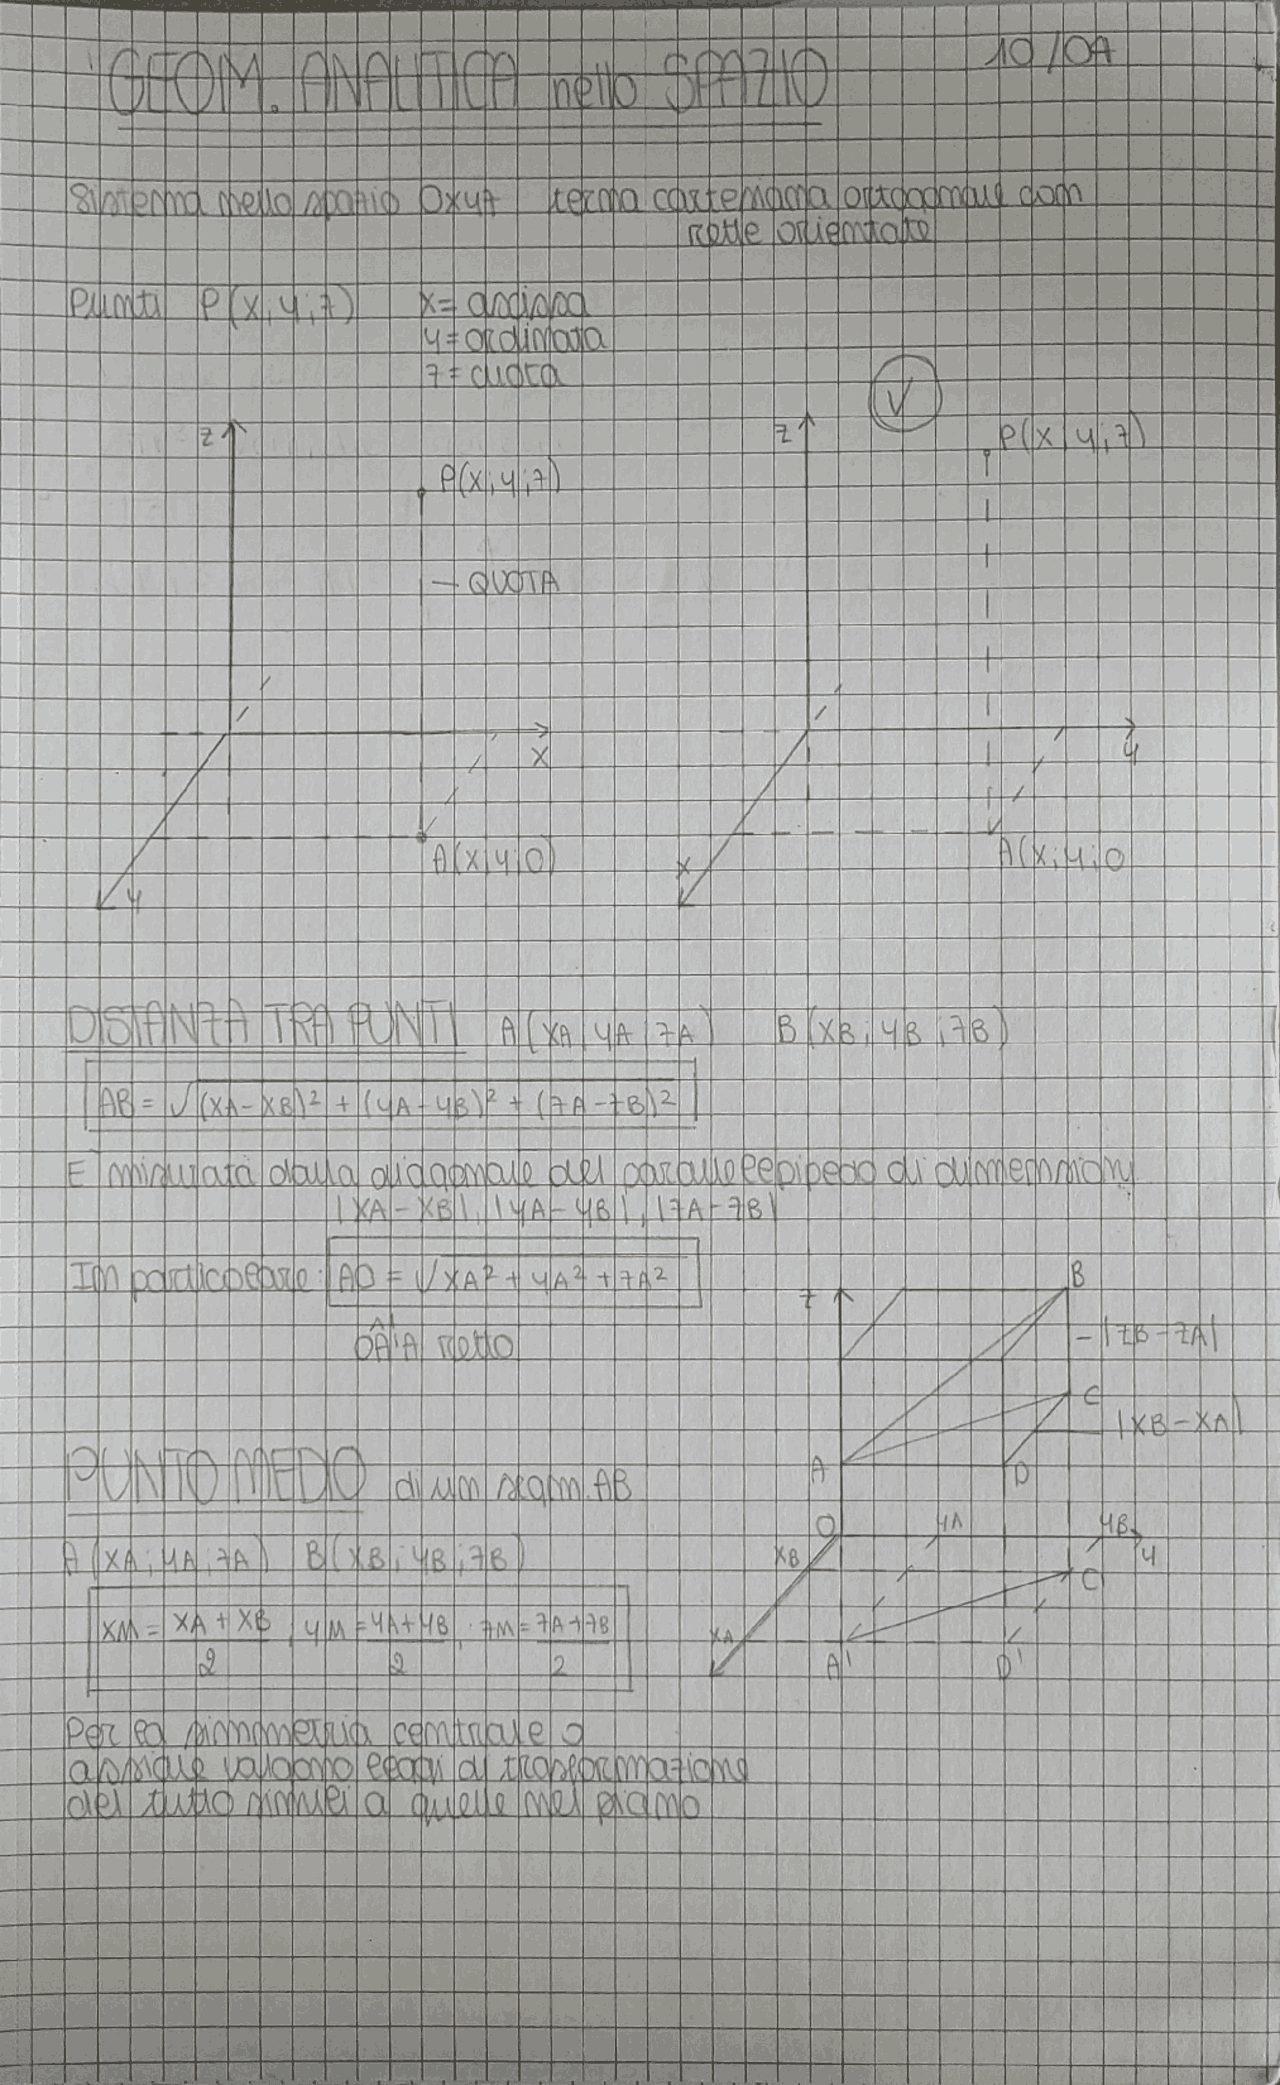 GEOM. ANALITICA nello SPAZIO 10/01
Sistema nello spazio Oxyz terna cartesiana ortogonale con
rette orientate
Punti P(x;y;z) x= ascissa
y=ordinata
z=quota
V
z z P(x;y;z)
P(x;y;z)
- QUOTA
x y
A(x;y;0) A(x;y;0
y x
DISTANZA TRA PUNTI A(xA;yA;zA) B(xB;yB;zB)
AB = √(xA-xB)² + (yA-yB)² + (zA-zB)²
E misurata dalla diagonale del parallelepipedo di dimensioni
|xA-xB|, |yA-yB|, |zA-zB|
In particolare: AO = √xA² + yA² + zA²
z B
OÂ'A retto
-|zB-zA|
C
|xB-xA|
A D
PUNTO MEDO di un segm. AB
O yA yB
y
A(xA;yA;zA) B(xB;yB;zB)
xB C'
xM = xA + xB / 2 ; yM = yA+yB / 2 ; zM = zA+zB / 2
xA A' D'
Per la simmetria centrale o
assiale valgono leggi di trasformazione
del tutto simili a quelle nel piano